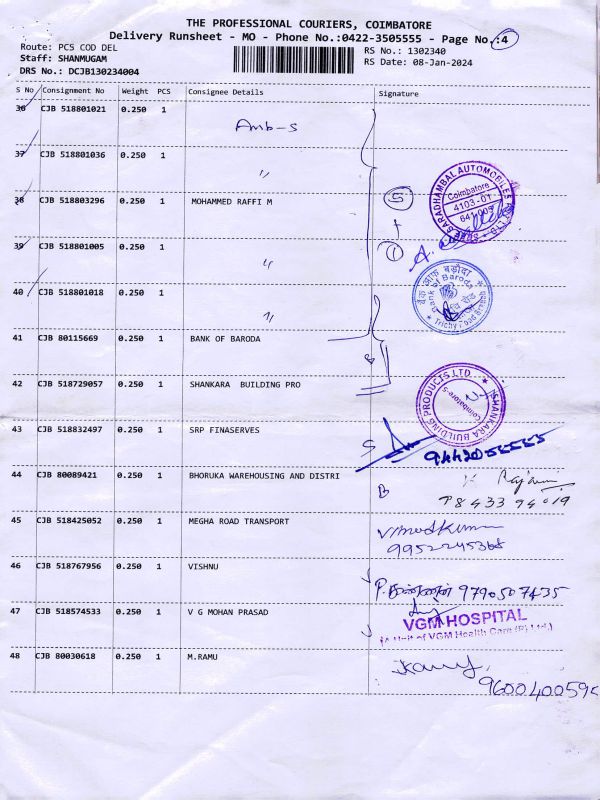 THE PROFESSIONAL COURIERS, COIMBATORE
Delivery Runsheet - MO - Phone No.:0422-3505555 - Page No.:4
Route: PCS COD DEL
RS No.: 1302340
Staff: SHANMUGAM
RS Date: 08-Jan-2024
DRS No.: DCJB130234004
S No Consignment No Weight PCS Consignee Details Signature
36 CJB 518801021 0.250 1 Amb-S
37 CJB 518801036 0.250 1 〃
38 CJB 518803296 0.250 1 MOHAMMED RAFFI M
39 CJB 518801005 0.250 1 〃
40 CJB 518801018 0.250 1 〃
5
+
1
SARADHAMBAL AUTOMOBILES
Coimbatore
4103-01
641 005
बैंक ऑफ़ बड़ौदा
Bank of Baroda
Trichy Road Branch
41 CJB 80115669 0.250 1 BANK OF BARODA
42 CJB 518729057 0.250 1 SHANKARA BUILDING PRO
SHANKARA BUILDING PRODUCTS LTD.
Coimbatore-5
43 CJB 518832497 0.250 1 SRP FINASERVES
9442055555
44 CJB 80089421 0.250 1 BHORUKA WAREHOUSING AND DISTRI
B
98433 94019
45 CJB 518425052 0.250 1 MEGHA ROAD TRANSPORT
Vinodkumar
9952245368
46 CJB 518767956 0.250 1 VISHNU
9790507435
47 CJB 518574533 0.250 1 V G MOHAN PRASAD
VGM HOSPITAL
(A Unit of VGM Health Care (P) Ltd.)
48 CJB 80030618 0.250 1 M.RAMU